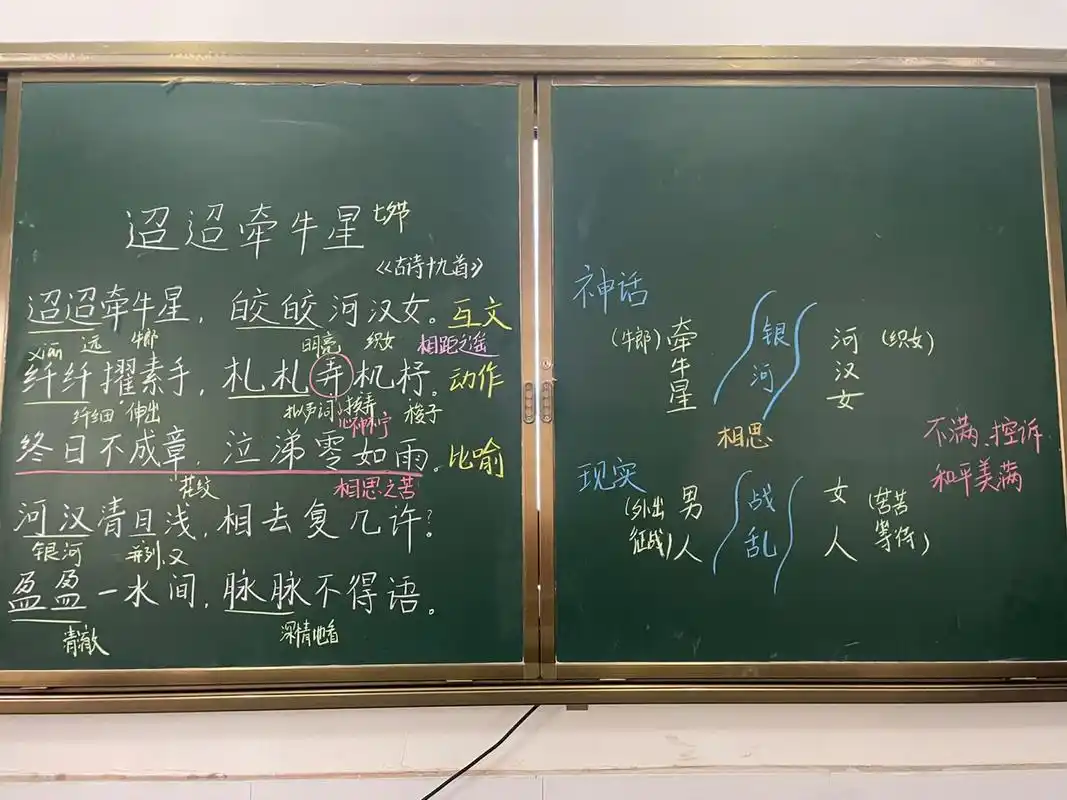 迢迢牵牛星 七夕节
《古诗十九首》
迢迢牵牛星，皎皎河汉女。互文
xiān 远 牛郎 明亮 织女 相距之遥
纤纤擢素手，札札弄机杼。动作
纤细 伸出 拟声词 摆弄 梭子
心神不宁
终日不成章，泣涕零如雨。比喻
花纹 相思之苦
河汉清且浅，相去复几许？
银河 并列.又
盈盈一水间，脉脉不得语。
清澈 深情地看
神话
(牛郎) 牵牛星 银河 河汉女 (织女)
相思
现实
(外出征战) 男人 战乱 女人 (苦苦等待)
不满、控诉
和平美满